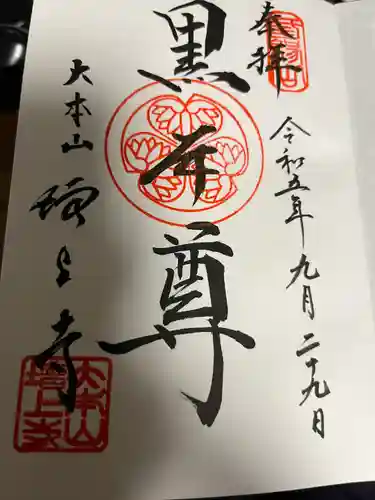 奉拝
令和五年九月二十九日
黒本尊
大本山
増上寺
大本山
増上寺